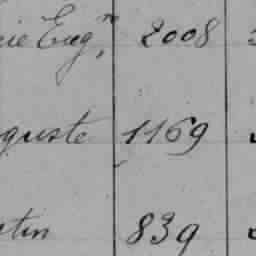 ie Eugⁿ, 2008
guste 1169
stin 839